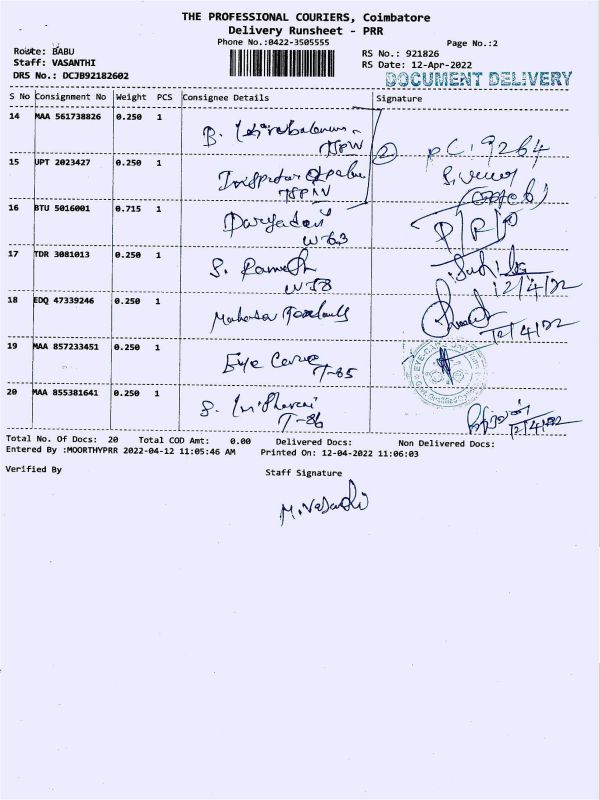 THE PROFESSIONAL COURIERS, Coimbatore
Delivery Runsheet - PRR
Phone No.:0422-3505555
Page No.:2
Route: BABU
RS No.: 921826
Staff: VASANTHI
RS Date: 12-Apr-2022
DRS No.: DCJB92182602
DOCUMENT DELIVERY
S No Consignment No Weight PCS Consignee Details Signature
14 MAA 561738826 0.250 1
B.
TSPW
2 PC. 9264
15 UPT 2023427 0.250 1
Inspector of police
TSPW
16 BTU 5016001 0.715 1
W-63
17 TDR 3081013 0.250 1
S. Ramesh
W-58
12/4/22
18 EDQ 47339246 0.250 1
12/4/22
19 MAA 857233451 0.250 1
Eye Care
T-85
20 MAA 855381641 0.250 1
S.
T-86
12/4/22
Total No. Of Docs: 20 Total COD Amt: 0.00 Delivered Docs: Non Delivered Docs:
Entered By :MOORTHYPRR 2022-04-12 11:05:46 AM Printed On: 12-04-2022 11:06:03
Verified By
Staff Signature
M. Vasanthi